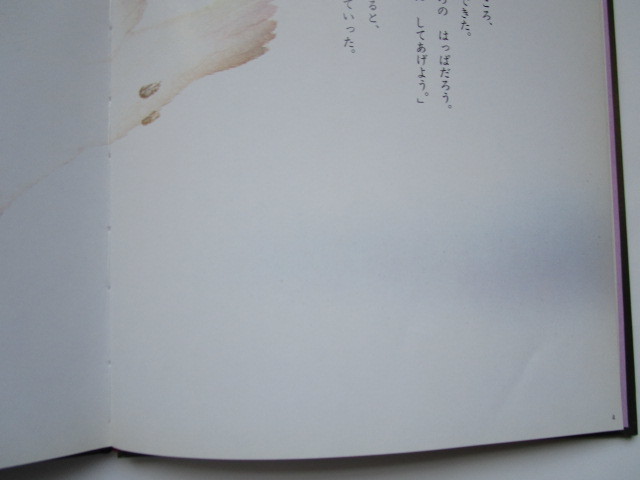 ころ、
できた。
の はっぱだろう。
してあげよう。」
ると、
ていった。